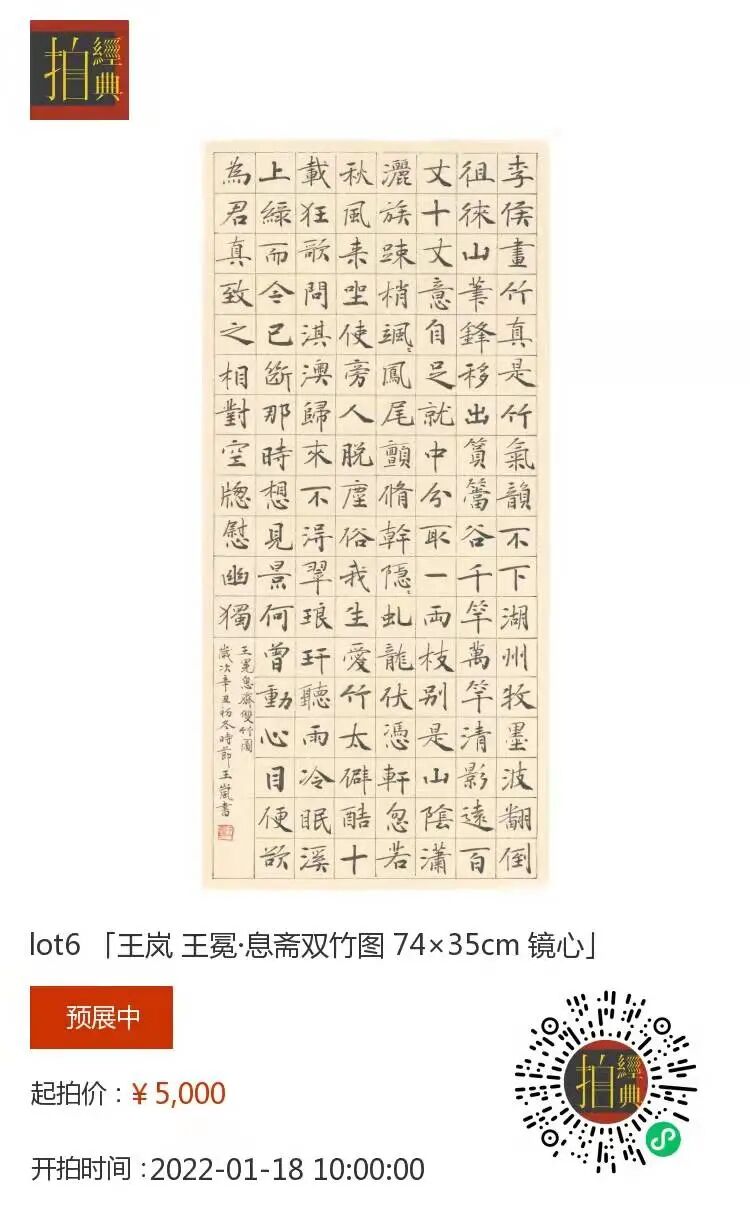 經典
拍
李侯畫竹真是竹氣韻不下湖州牧墨波翻倒
徂徠山筆鋒移出篔簹谷千竿萬竿清影遠百
丈十丈意自足就中分取一兩枝別是山陰瀟
灑族踈梢颯〻鳳尾顫脩幹隱〻虬龍伏憑軒忽若
秋風来坐使旁人脫塵俗我生愛竹太僻酷十
載狂歌問淇澳歸來不得翠琅玕聽雨冷眠溪
上綠而今已斷那時想見景何曾動心目便欲
為君真致之相對空牕慰幽獨
王冕息齋雙竹圖
歲次辛丑初冬時節王嵐書
lot6 「王岚 王冕·息斋双竹图 74×35cm 镜心」
预展中
起拍价：¥ 5,000
开拍时间：2022-01-18 10:00:00
經典
拍